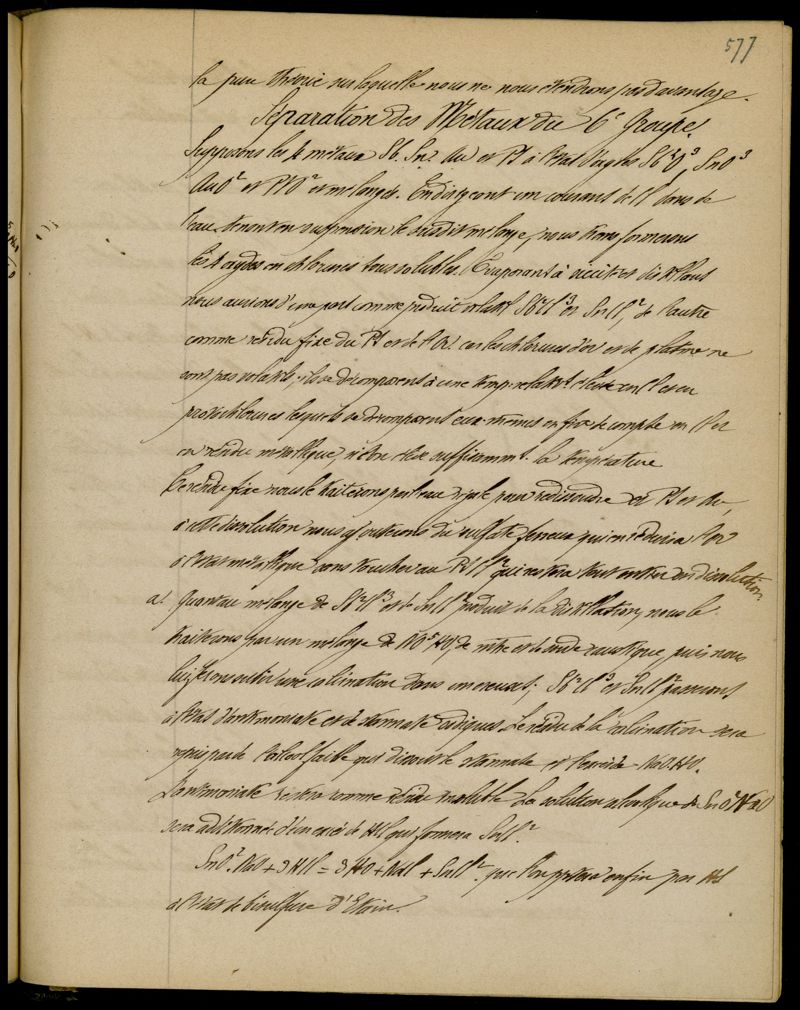 577
la pure théorie sur laquelle nous ne nous étendrons pas davantage.
Séparation des Métaux du 6e Groupe.
Supposons les 4 métaux Sb, Sn, Au et Pt à l'état d'oxydes Sb2O3, SnO
AuO2 et PtO2 et mélangés. En dirigeant un courant de Cl dans de
l'eau tenant en suspension le susdit mélange, nous transformerons
les 4 oxydes en chlorures tous solubles. Evaporant à siccité et distillant
nous aurons d'une part comme produit volatil Sb2Cl3 et SnCl2, de l'autre
comme résidu fixe du Pt et de l'Or car les chlorures d'or et de platine ne
sont pas volatils, ils se décomposent à une temp. relativt élevée en Cl et en
protochlorures lesquels se décomposent eux-mêmes en fin de compte en Cl et
en résidu métallique, si l'on élève suffisamment la température
Le résidu fixe nous le traiterons par l'eau régale pour redissoudre et Pt et Au,
à cette dissolution nous ajouterons du sulfate ferreux qui réduira l'or
à l'état métallique sans toucher au PtCl2 qui restera tout entier en dissolution.
a) Quant au mélange de Sb2Cl3 et de SnCl2 produit de la distillation, nous le
traiterons par un mélange de NO5HO, de nitre et de soude caustique, puis nous
lui ferons subir une calcination dans un creuset; Sb2Cl3 et SnCl2 passeront
à l'état d'antimoniate et de stannate sodiques. Le résidu de la calcination sera
repris par de l'alcool faible qui dissout le stannate et l'excès de NaO.HO.
L'antimoniate restera comme résidu insoluble. La solution alcoolique de SnO2NaO
sera additionnée d'un excès de HCl qui formera SnCl2.
SnO2.NaO + 3HCl = 3HO + NaCl + SnCl2. que l'on pptera enfin par HS
à l'état de bisulfure d'Etain.